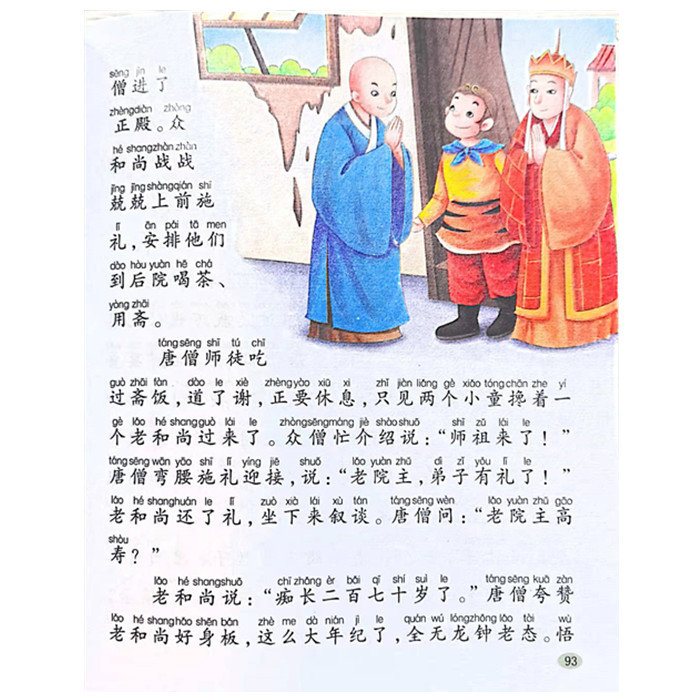 sēng jìn le
僧进了
zhèngdiàn zhòng
正殿。众
hé shangzhàn zhàn
和尚战战
jīng jīngshàngqián shī
兢兢上前施
lǐ ān pái tā men
礼，安排他们
dào hòu yuàn hē chá
到后院喝茶、
yòng zhāi
用斋。
táng sēng shī tú chī
唐僧师徒吃
guò zhāi fàn dào le xiè zhèng yào xiū xi zhǐ jiàn liǎng gè xiǎo tóng chān zhe yí
过斋饭，道了谢，正要休息，只见两个小童搀着一
gè lǎo hé shang guò lái le zhòng sēng máng jiè shào shuō shī zǔ lái le
个老和尚过来了。众僧忙介绍说：“师祖来了！”
táng sēng wān yāo shī lǐ yíng jiē shuō lǎo yuàn zhǔ dì zǐ yǒu lǐ le
唐僧弯腰施礼迎接，说：“老院主，弟子有礼了！”
lǎo hé shang huán le lǐ zuò xià lái xù tán táng sēng wèn lǎo yuàn zhǔ gāo
老和尚还了礼，坐下来叙谈。唐僧问：“老院主高
shòu
寿？”
lǎo hé shang shuō chī zhǎng èr bǎi qī shí suì le táng sēng kuā zàn
老和尚说：“痴长二百七十岁了。”唐僧夸赞
lǎo hé shang hǎo shēn bǎn zhè me dà nián jì le quán wú lóng zhōng lǎo tài wù
老和尚好身板，这么大年纪了，全无龙钟老态。悟
93